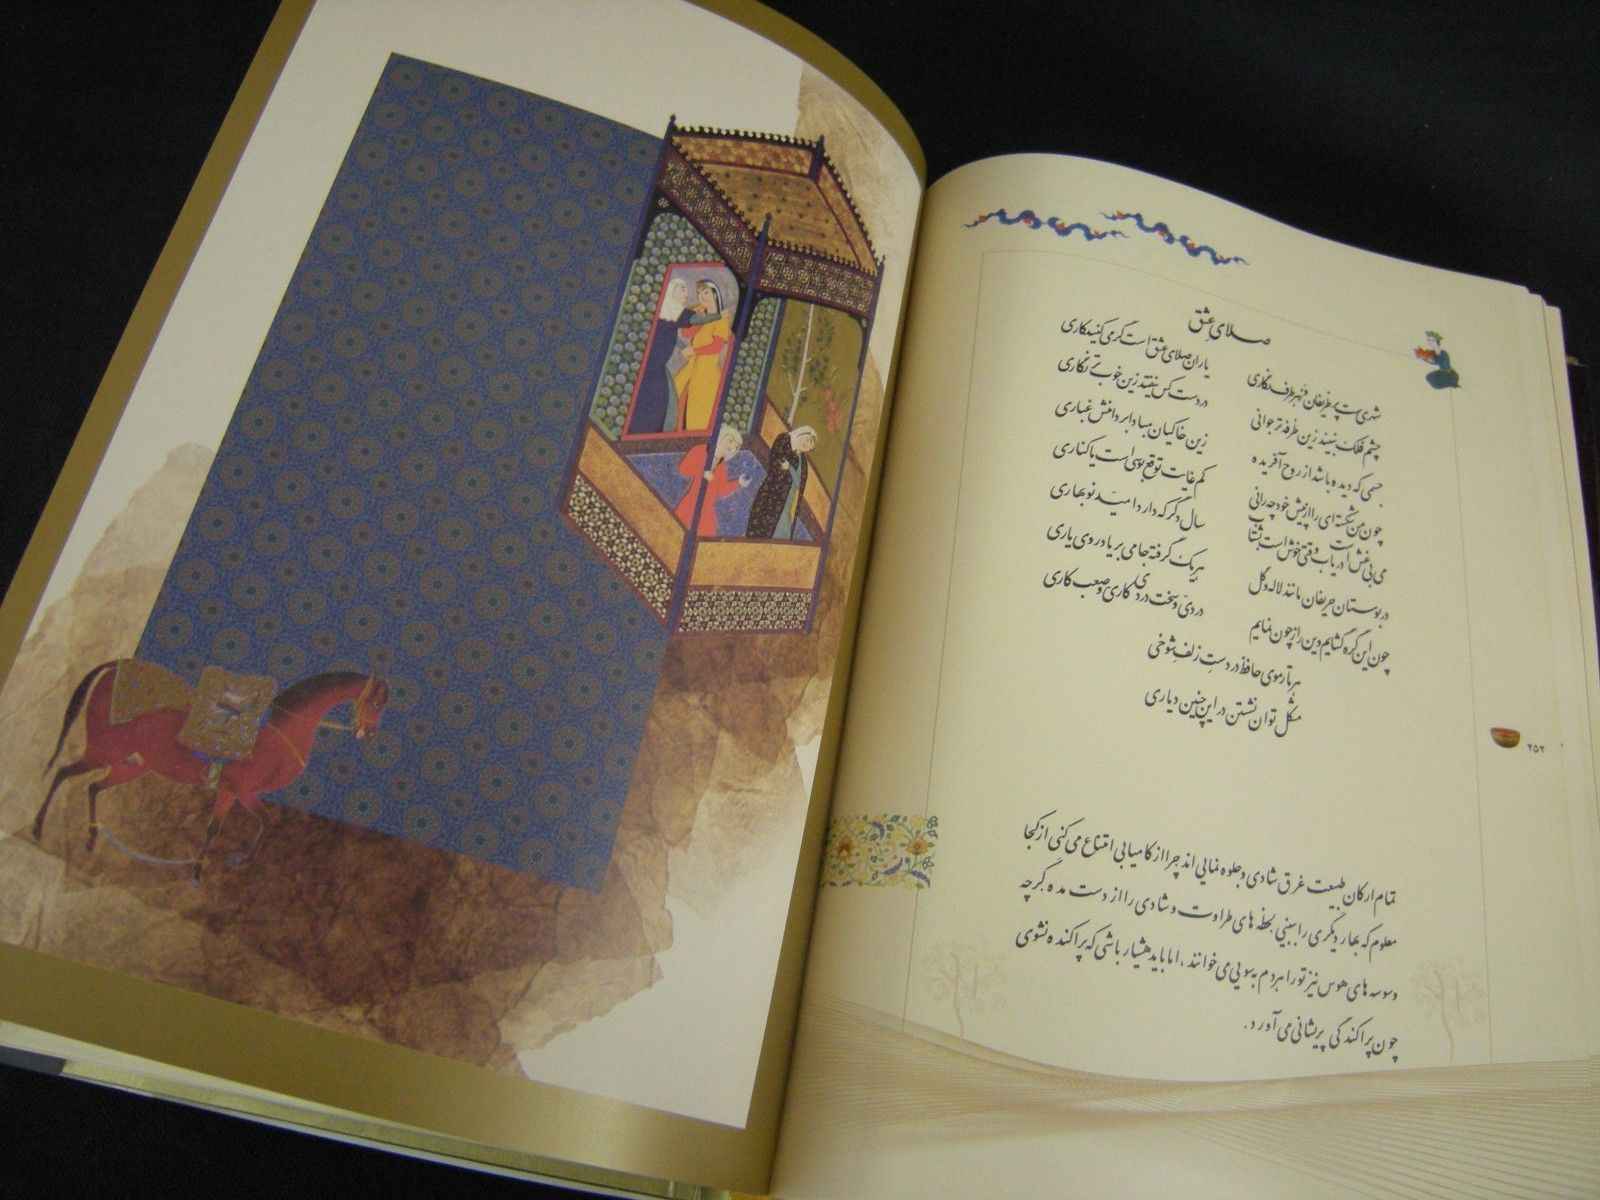 صلای عشق
شهری ست پر ظریفان وز هر طرف نگاری
یاران صلای عشق است گر می کنید کاری
چشم فلک نبیند زین طرفه تر جوانی
در دست کس نیفتد زین خوب تر نگاری
جسمی که دیده باشد از روح آفریده
زین خاکیان مبادا بر دامنش غباری
چون من شکسته ای را از پیش خود چه رانی
کم غایت توقع بوسی است یا کناری
می بی غش است دریاب وقتی خوش است بشتاب
سال دگر که دارد امید نوبهاری
در بوستان حریفان مانند لاله و گل
هر یک گرفته جامی بر یاد روی یاری
چون این گره گشایم وین راز چون نمایم
دردی و سخت دردی کاری و صعب کاری
هر تار موی حافظ در دست زلف شوخی
مشکل توان نشستن در این چنین دیاری
۲۵۲
تمام ارکان طبیعت غرق شادی و جلوه نمایی اند چرا از کامیابی امتناع می کنی از کجا
معلوم که بهار دیگری را ببینی لحظه های طراوت و شادی را از دست مده گرچه
وسوسه های هوس نیز تو را هر دم به سویی می خوانند، اما باید هشیار باشی که پراکنده نشوی
چون پراکندگی پریشانی می آورد.